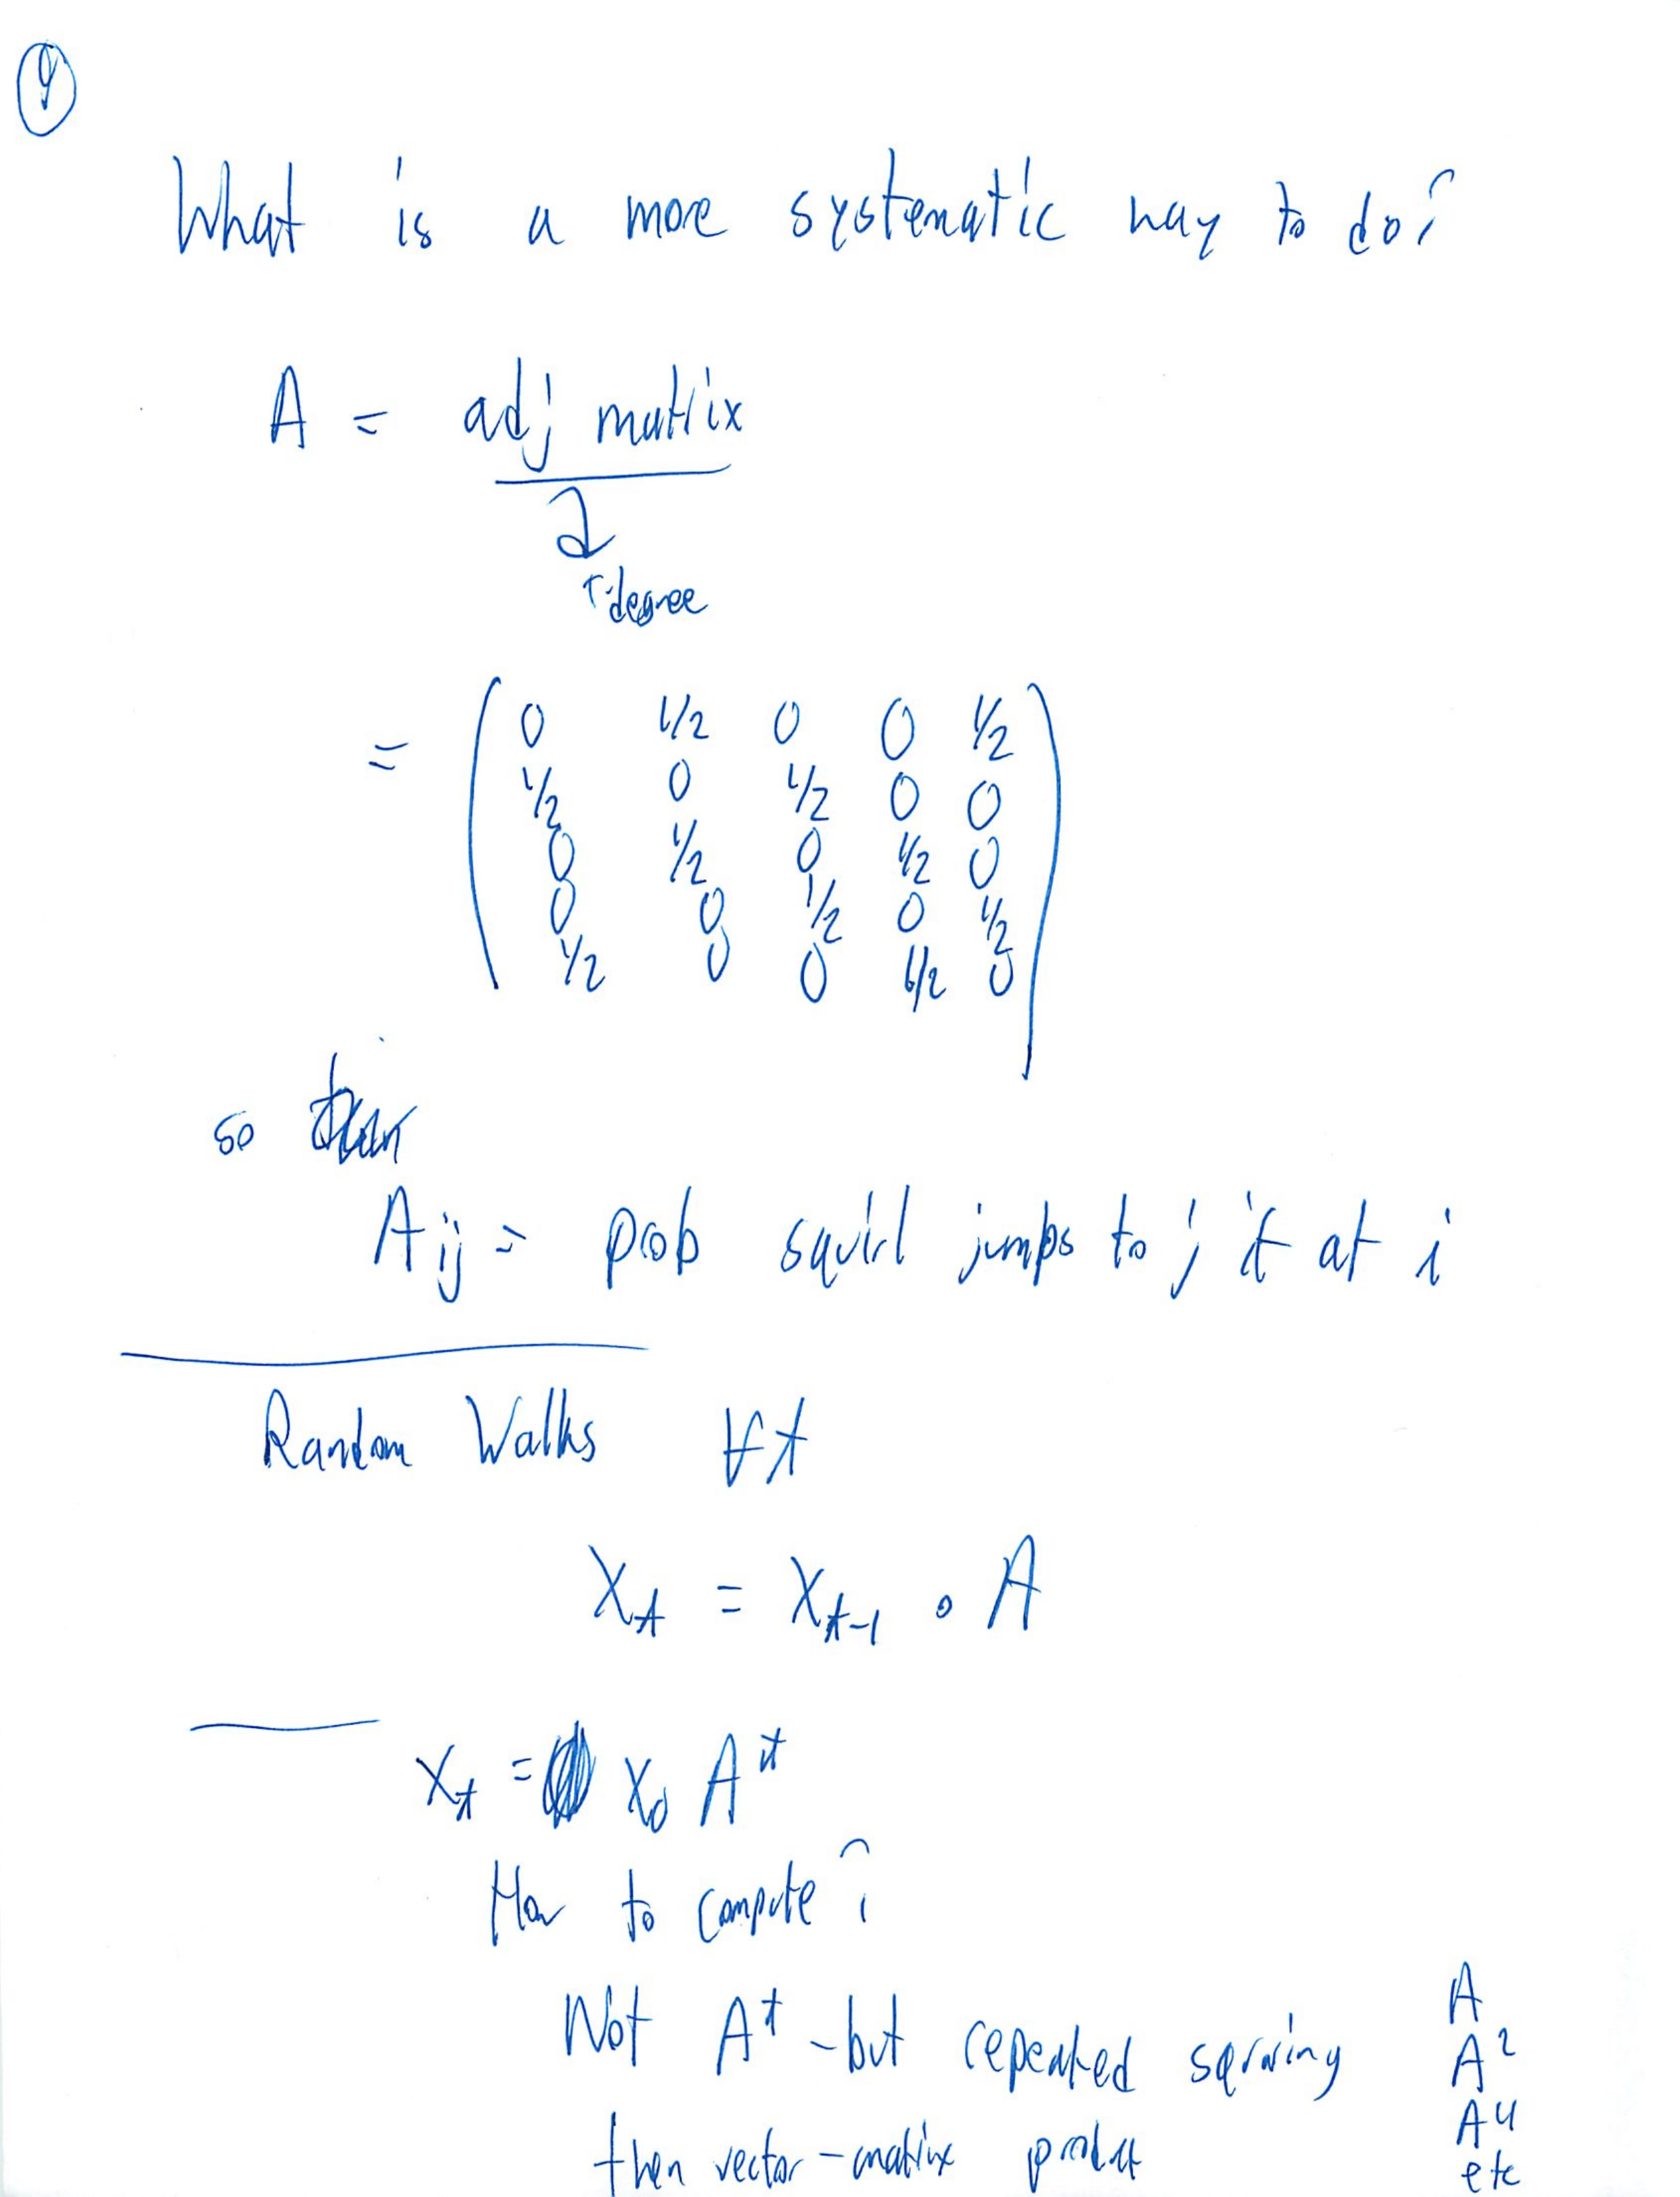 9
What is a more systematic way to do?
A = adj matrix
d
↑ degree
= ( 0 1/2 0 0 1/2
1/2 0 1/2 0 0
0 1/2 0 1/2 0
0 0 1/2 0 1/2
1/2 0 0 1/2 0 )
so
Aij = prob squirl jumps to j if at i
Random Walks ∀t
Xt = Xt-1 ∘ A
Xt = X0 A^t
How to compute?
Not A^t - but repeated squaring
then vector - matrix product
A
A^2
A^4
etc